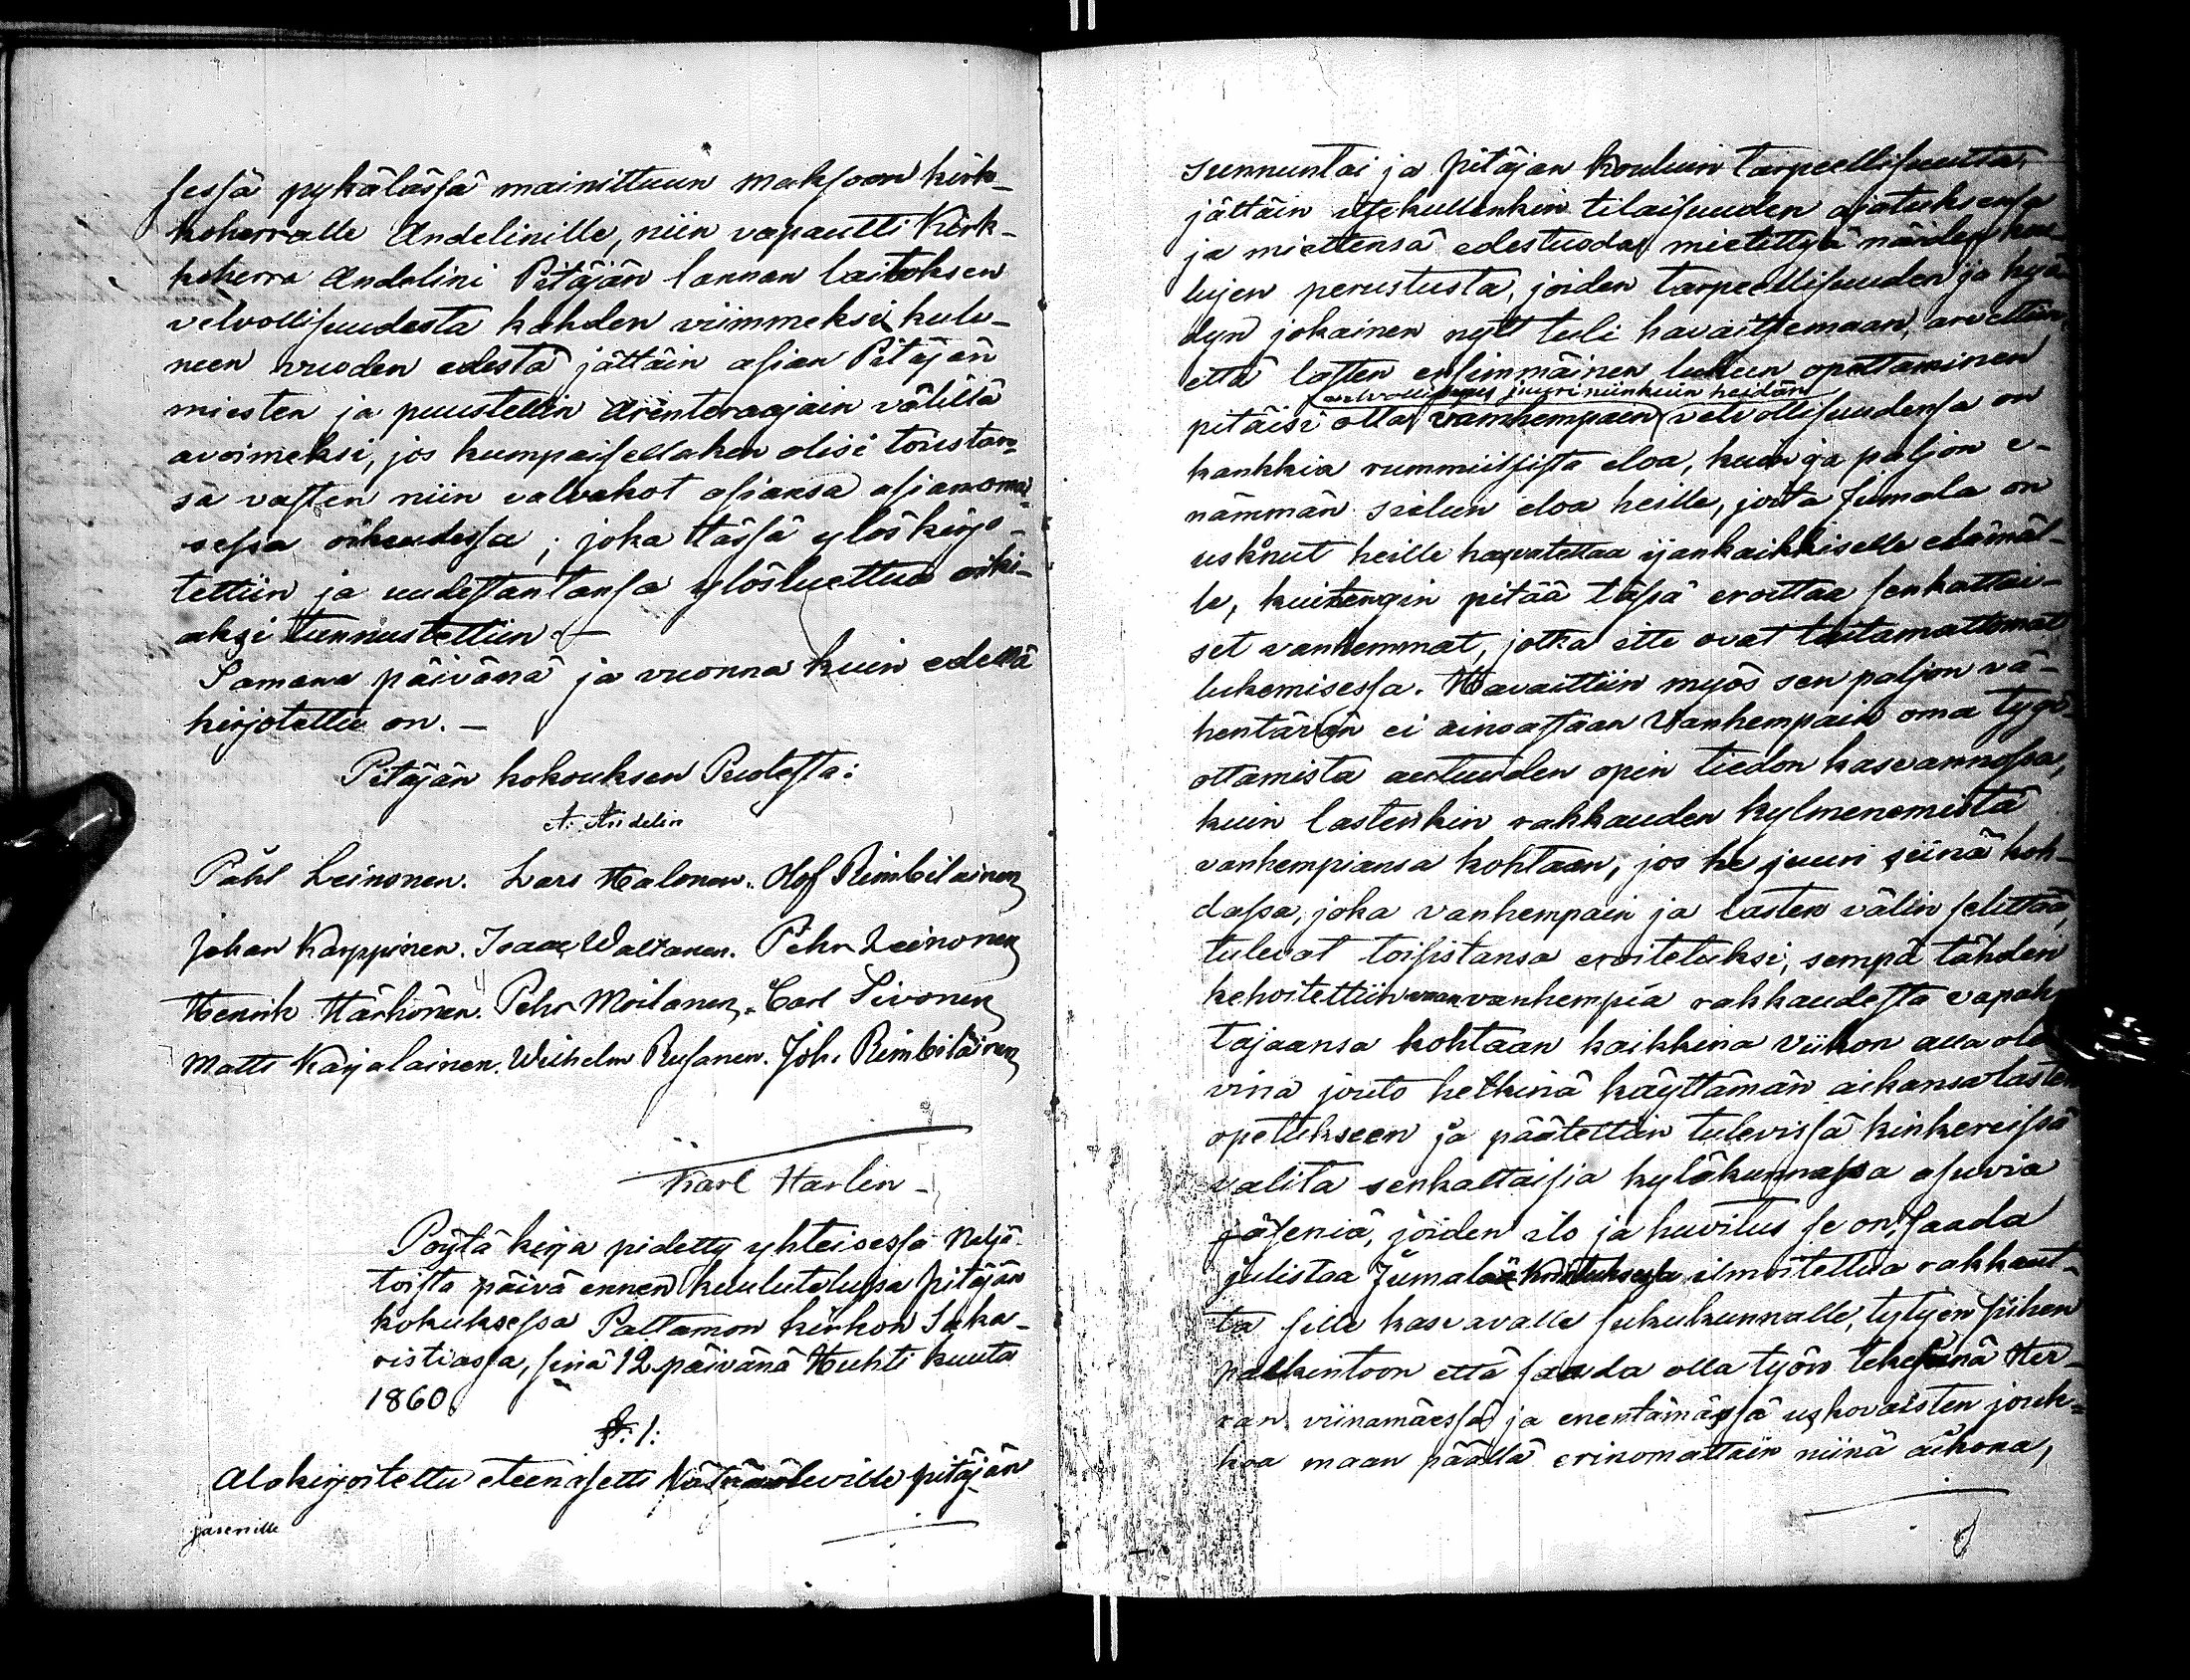 sessä pykälässä mainittuun maksoon kirk-
koherralle Andelinille, niin vapautti Kirk-
koherra Andelini Pitäjän lannan laitoksen
velvollisuudesta kahden viimmeksi kulu-
neen vuoden edestä jättäin asian Pitäjän
miesten ja puustellin Arenteraajain välillä
avoimeksi, jos kumpaisellaken olisi toistan-
sa vasten niin valvakot asiansa asianoma-
sessa oikeudessa; joka tässä ylöskirjo-
tettiin ja uudestantansa ylösluettua oiki-
aksi tunnustettiin. —
Samana päivänä ja vuonna kuin edellä
kirjotettu on. —
Pitäjän kokouksen Puolesta:
A. Andelin
Påhl Leinonen. Lars Halonen. Olof Rimbiläinen
Johan Karppinen. Isaac Waltanen. Pehr Leinonen
Henrik Härkönen. Pehr Moilanen. Carl Sivonen
Matts Karjalainen. Wilhelm Rusanen. Joh. Rimbiläinen
Karl Harlin
Pöytä kirja pidetty yhteisessä Neljä-
toista päivä ennen kuulutetussa pitäjän
kokuksessa Paltamon kirkon Saka-
ristiassa, sinä 12 päivänä Huhti kuuta
1860
§. 1:
Alakirjoitettu eteenasetti läsnäoleville pitäjän
jäsenille
sunnuntai ja pitäjän kouluin tarpeellisuutta,
jättäin itsekullenkin tilaisuuden ajatuksensa
ja miettensä edestuoda, mietittyä näiden kou-
lujen perustusta, joiden tarpeellisuuden ja hyö-
dyn jokainen nytt tuli havaitsemaan, arveltiin,
että lasten ensimmäinen lukuun opettaminen
juuri niinkuin heidän
pitäisi olla vanhempaen velvollisuudensa on
hankkia rummiillista eloa, kuin ja paljon e-
nämmän sielun eloa heille, joita Jumala on
usknut heille kasvatettaa ijankaikkiselle elämäl-
le, kuitengin pitää tässä eroittaa senkattai-
set vanhemmat, jotka itte ovat taitamattomat
lukemisessa. Havaittiin myös sen paljon vä-
hentävän ei ainoastaan Vanhempain oma tygö-
ottamista autuuden opin tiedon kasvannossa,
kuin lastenkin rakkauden kylmenemistä
vanhempiansa kohtaan, jos he juuri siinä koh-
dassa, joka vanhempain ja lasten välin selittää,
tulevat toisistansa eroitetuksi, sempä tähden
kehoitettiin vanhempia rakkaudesta vapah-
tajaansa kohtaan kaikkina Viikon alla ole-
vina jouto hetkinä käyttämän aikansa lasten
opetukseen ja päätettiin tulevissa kinkereissä
valita senkaltaisia kyläkunnassa asuvia
jäseniä, joiden ilo ja huvitus se on, saada
julistaa Jumalan Kristuksessa ilmoitettua rakkaut-
ta sille kasvavalle sukukunnalle, tytyen siihen
palkintoon että saada olla työn tekesinä Her-
ran viinamäessä ja enentämässä uskovaisten jouk-
koa maan päällä erinomattain niinä aikona,